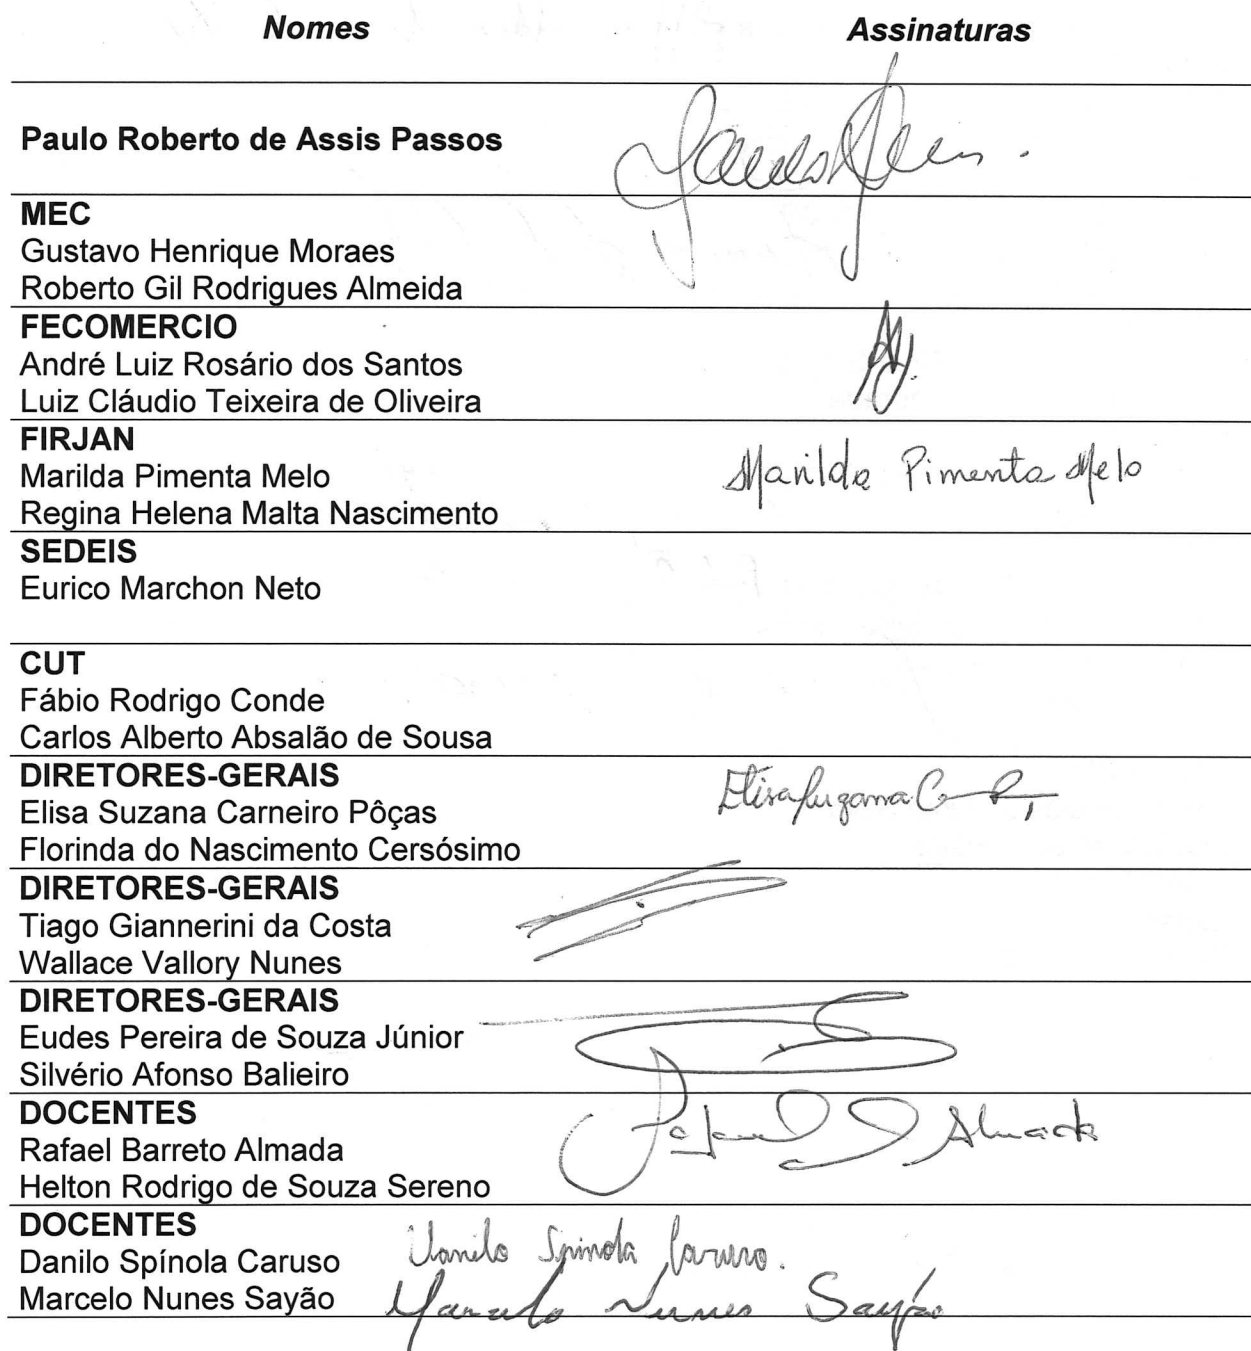 Nomes Assinaturas
Paulo Roberto de Assis Passos
MEC
Gustavo Henrique Moraes
Roberto Gil Rodrigues Almeida
FECOMERCIO
André Luiz Rosário dos Santos
Luiz Cláudio Teixeira de Oliveira
FIRJAN
Marilda Pimenta Melo Marilda Pimenta Melo
Regina Helena Malta Nascimento
SEDEIS
Eurico Marchon Neto
CUT
Fábio Rodrigo Conde
Carlos Alberto Absalão de Sousa
DIRETORES-GERAIS
Elisa Suzana Carneiro Pôças Elisa Suzana
Florinda do Nascimento Cersósimo
DIRETORES-GERAIS
Tiago Giannerini da Costa
Wallace Vallory Nunes
DIRETORES-GERAIS
Eudes Pereira de Souza Júnior
Silvério Afonso Balieiro
DOCENTES
Rafael Barreto Almada Rafael Almada
Helton Rodrigo de Souza Sereno
DOCENTES
Danilo Spínola Caruso Danilo Spinola Caruso.
Marcelo Nunes Sayão Marcelo Nunes Sayão